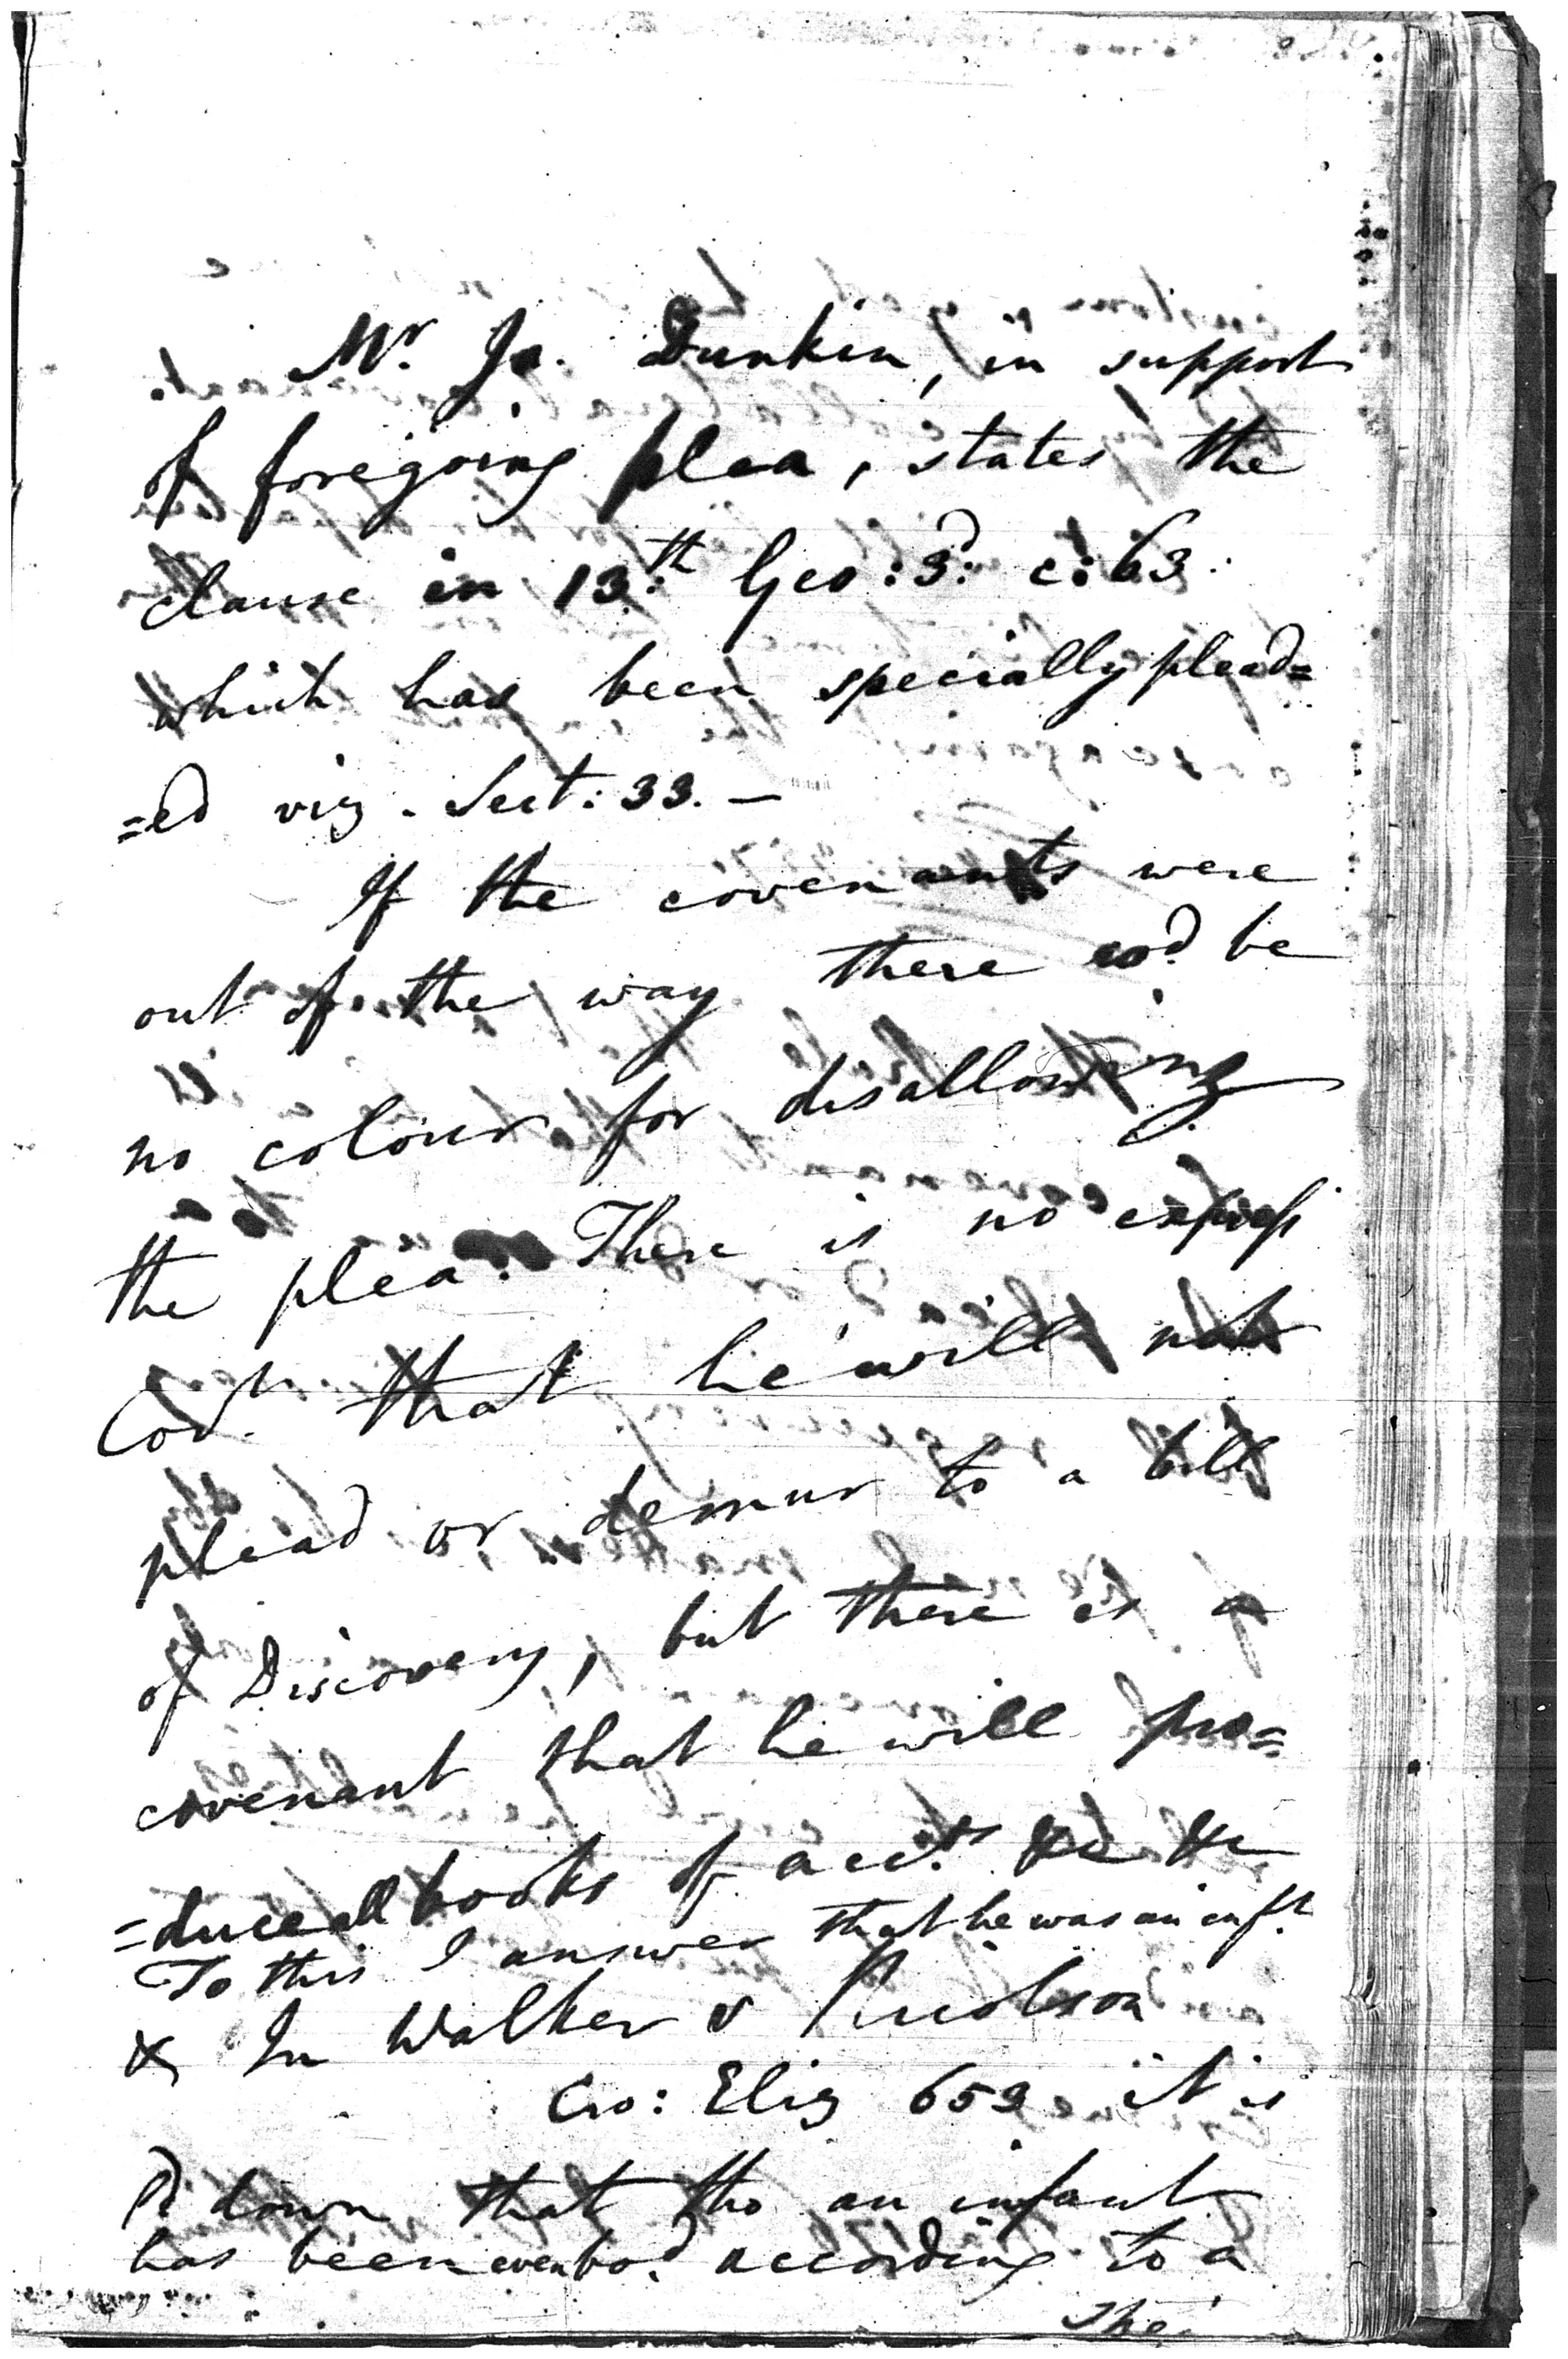 Mr. Jo. Dunkin, in support
of foregoing plea, states the
clause in 13.th Geo: 3d. c: 63.
which has been specially plead=
=ed viz. Sect: 33. —
If the covenants were
out of the way there cod. be
no colour for disallowing
the plea. There is no express
Covt. that he will not
plead or demur to a bill
of Discovery, but there is a
covenant that he will pro=
=duce all books of acc.ts &c &c
To this I answer that he was an inft.
x In Walker v Nicolson
Cro: Eliz 653 it is
ld down that tho an infant
has been even bod. according to a
The